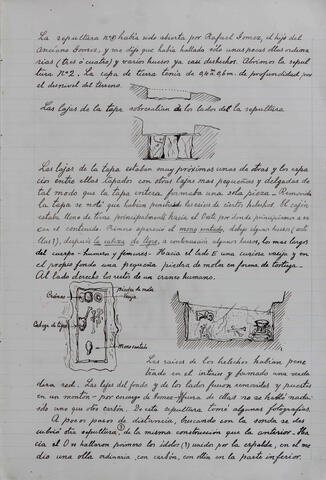 La sepultura nº1 había sido abierta por Rafael Gomez, el hijo del
Anciano Gomez, y me dijo que había hallado sólo unas pocas ollas ordina
rias (tres ó cuatro) y varios huesos ya casi deshechos. Abrimos la sepul
tura Nº2. La capa de tierra tenía de 0,4 a 0,6m. de profundidad, por
el desnivel del terreno.
Las lajas de la tapa sobresalían de los lados del la sepultura
Las lajas de la tapa estaban muy próximas unas de otras y los espa
cios entre ellas tapados con otras lajas mas pequeñas y delgadas de
tal modo que la tapa entera formaba una sola pieza - Removida
la tapa se notó que habían penetrado las raices de ciertos helechos. El cajón
estaba lleno de tierra principalmente hacia el Oeste por donde principiamos a sa
car el contenido. Primero apareció el mono sentado, debajo algunos huesos
después la cabeza de tigre, a continuación algunos huesos, los mas largos
del cuerpo - humero y femures. Hacia el lado E una curiosa vasija y en
el propio fondo una pequeña piedra de moler en forma de tortuga.
Al lado derecho los restos de un craneo humano.
piedra de moler
Craneo
vasija
Cabeza de tigre
Mono sentado
Las raices de los helechos habían pene
trado en el interior y formado una verda
dera red. Las lajas del fondo y de los lados fueron removidas y puestas
en un montón - por encargo de Gomez - Afuera de ellas no se halló nada
sino uno que otro carbón. De esta sepultura tomé algunas fotografías.
A pocos pasos de distancia, buscando con la sonda se des
cubrió otra sepultura, de la misma construcción que la anterior. Ha
cia el O se hallaron primero los ídolos (3) unidos por la espalda, en el me
dio una olla ordinaria, con carbón, con ollas en la parte inferior.